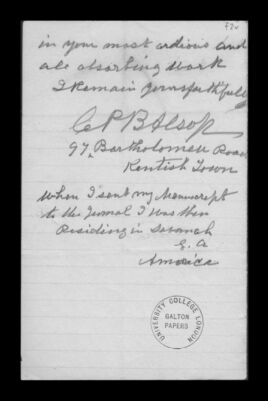 72v
in your most ardious and
all absorbing work
I Remain yours faithfully
C P B Alsop
97 Bartholomew Road
Kentish Town
When I sent my Manuscript
to the Jernal I was then
Residing in Savanah
G. A
America
UNIVERSITY COLLEGE LONDON
GALTON
PAPERS